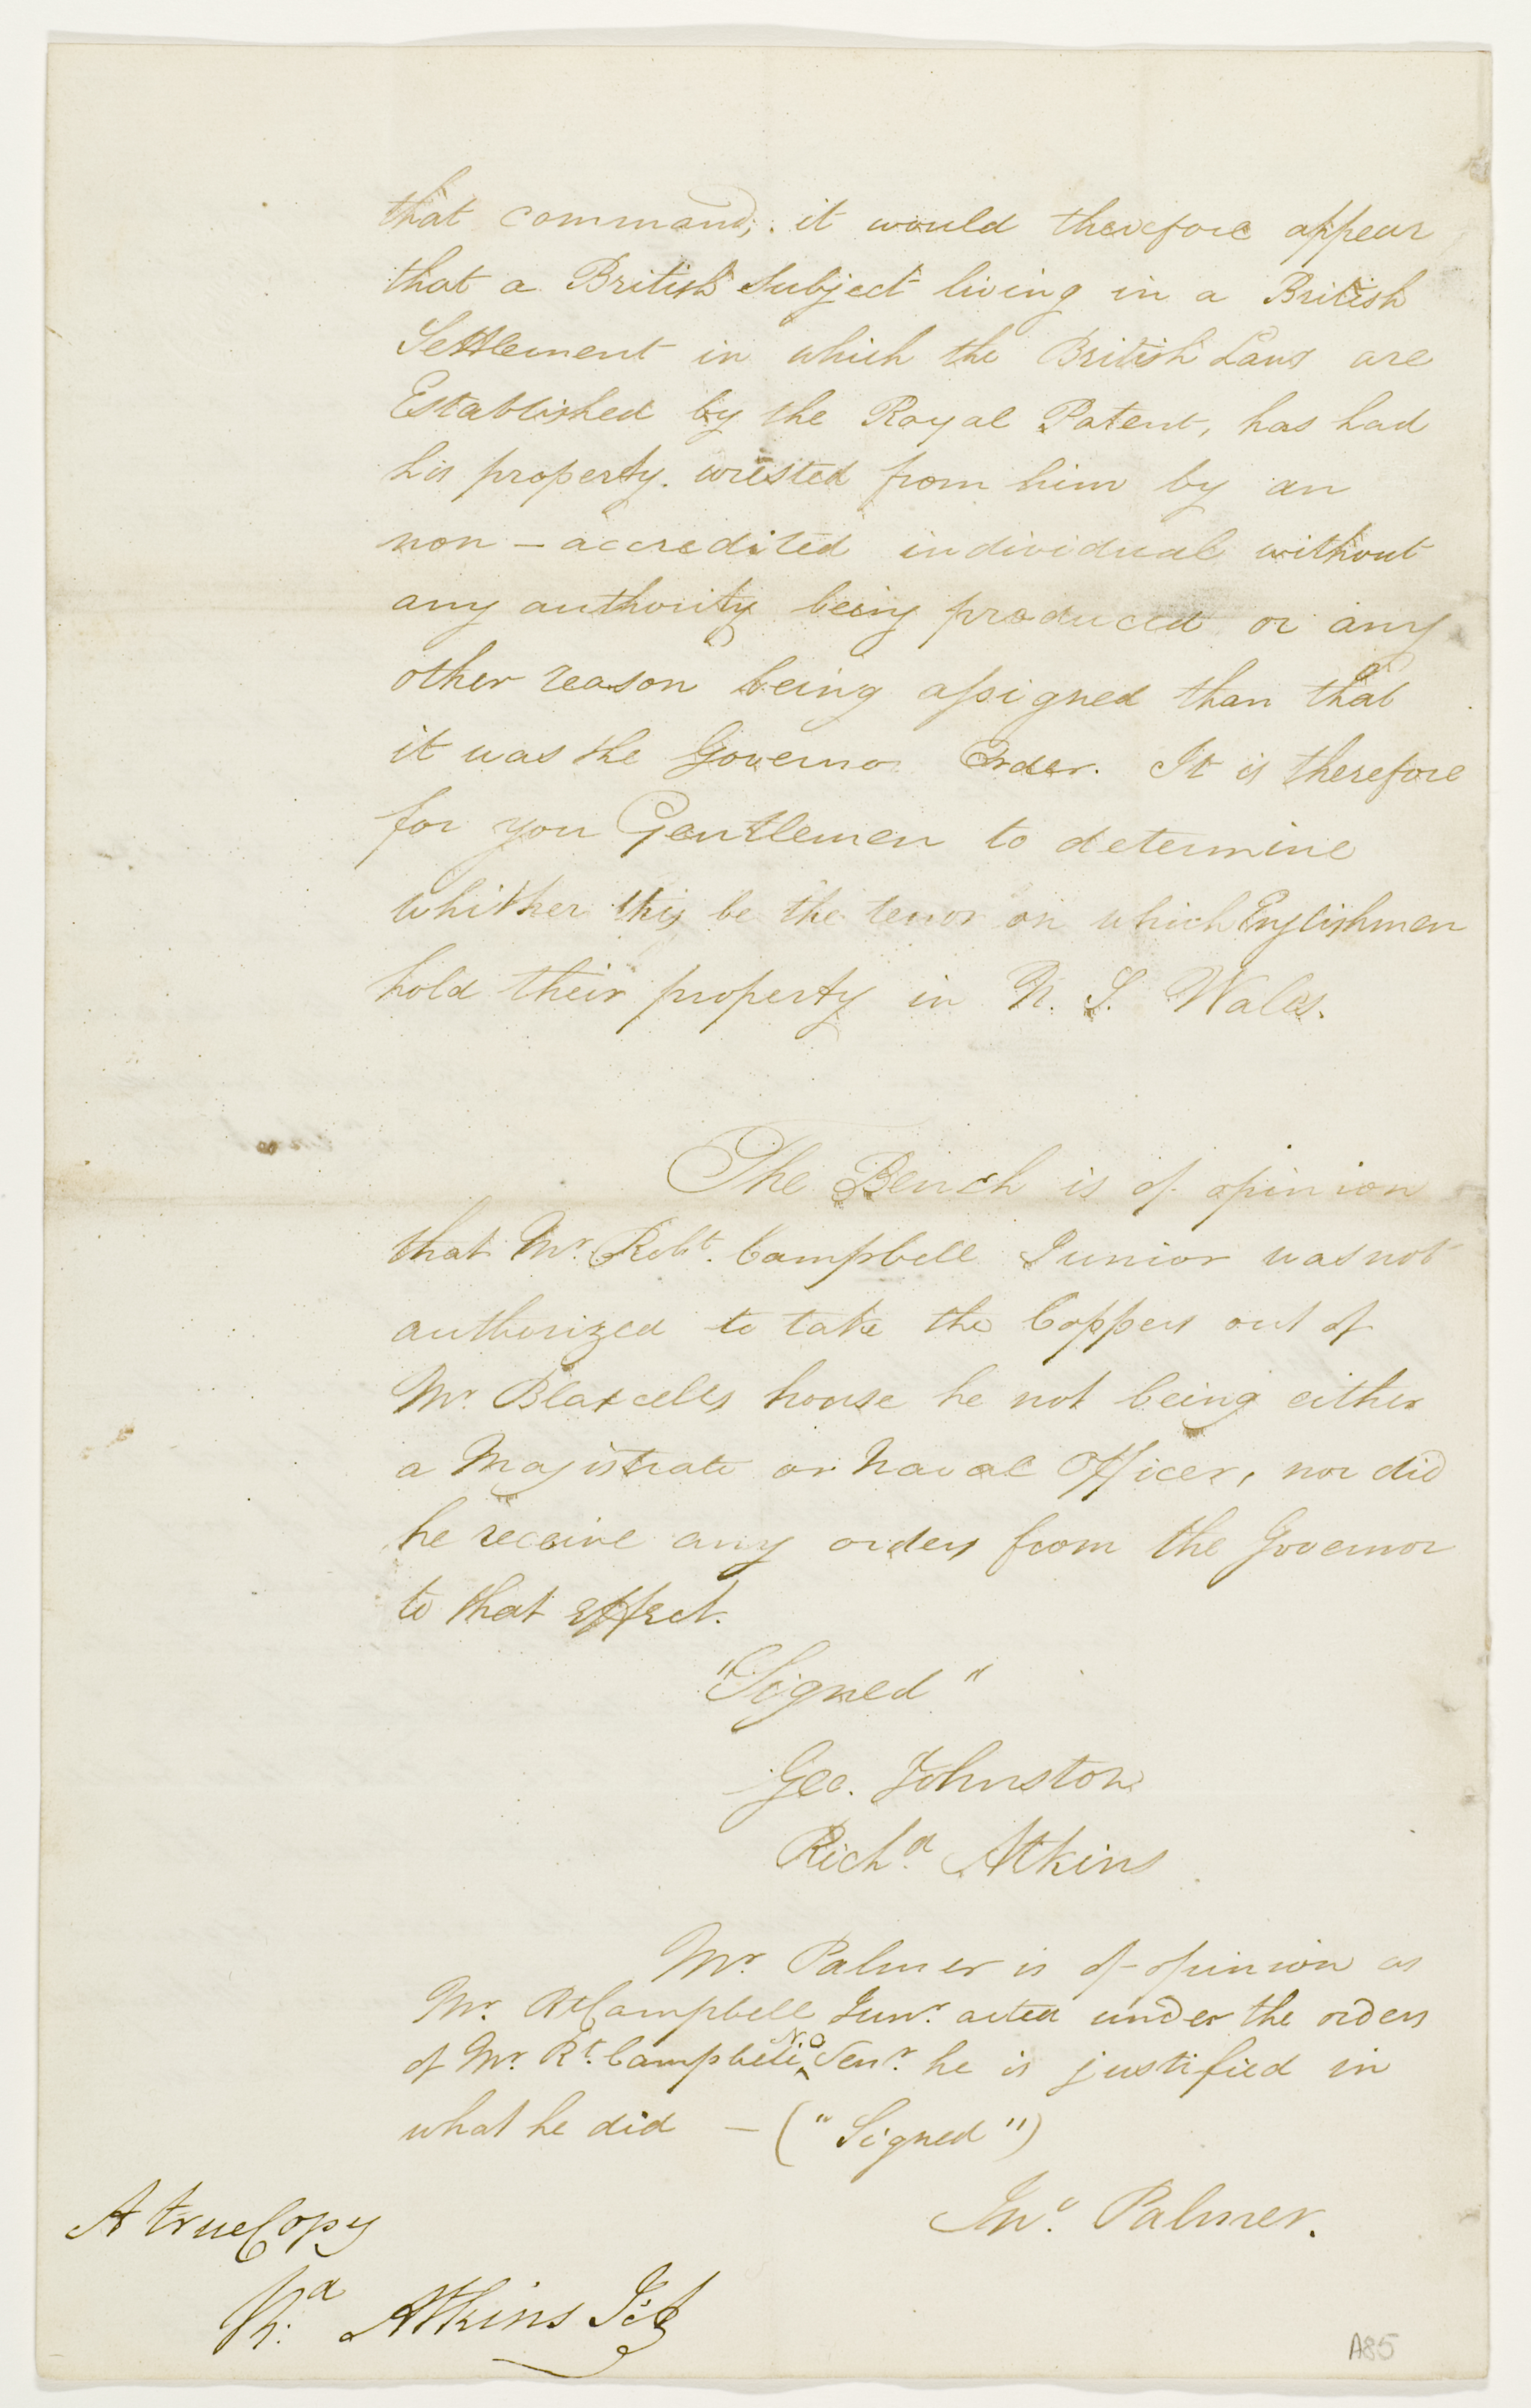 that command; it would therefore appear
that a British Subject living in a British
Settlement in which the British Laws are
Established by the Royal Patent, has had
his property. wrested from him by an
non - accredited individual without
any authority being produced or any
other reason being assigned than that
it was the Governor Order. It is therefore
for you Gentlemen to determine
whither this be the tenor on which Englishmen
hold their property in N. S. Wales.
The Bench is of opinion
that Mr. Robt. Campbell Junior was not
authorized to take the Coppers out of
Mr. Blaxcells house he not being either
a Magistrate or Naval Officer, nor did
he receive any orders from the Governor
to that effect.
"Signed"
Geo. Johnston
Richd. Atkins
Mr. Palmer is of opinion as
Mr. Rt Campbell Junr. acted under the orders
of Mr. Rt. Campbell N.O Senr. he is justified in
what he did - ("Signed")
Jno. Palmer.
A true Copy
Rd. Atkins
A85